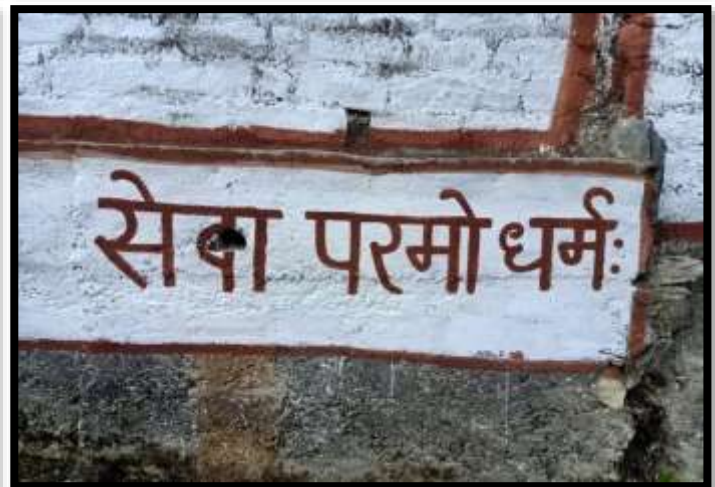 सेवा परमो धर्मः